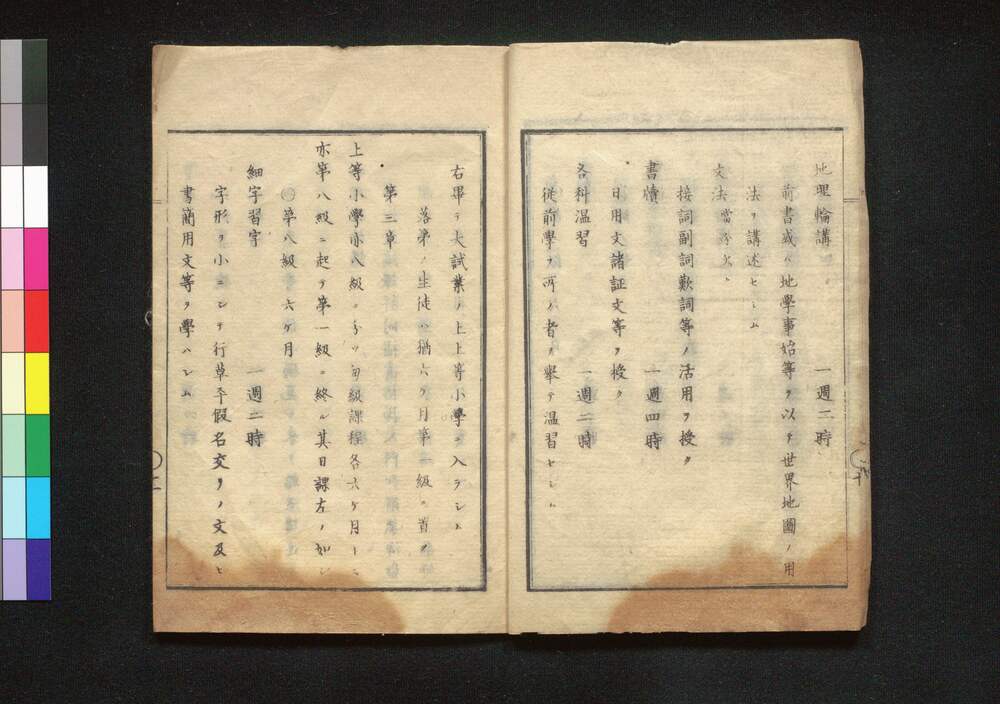 地理輪講 一週二時
前書或ハ地學事始等ヲ以テ世界地圖ノ用
法ヲ講述セシム
文法當分欠ク
接詞副詞歎詞等ノ活用ヲ授ク
書牘 一週四時
日用文諸証文等ヲ授ク
各科温習 一週二時
従前學フ所ノ者ヲ擧テ温習セシム
右畢テ大試業ノ上上等小學ニ入ラシム
落第ノ生徒ハ猶六ケ月第一級ニ置ク
第三章
上等小學亦八級ニ分ツ毎級課程各六ケ月トシ
亦第八級ニ起テ第一級ニ終ル其日課左ノ如シ
第八級 六ケ月
細字習字 一週二時
字形ヲ小ニシテ行草平假名交リノ文及ヒ
書簡用文等ヲ學ハシム